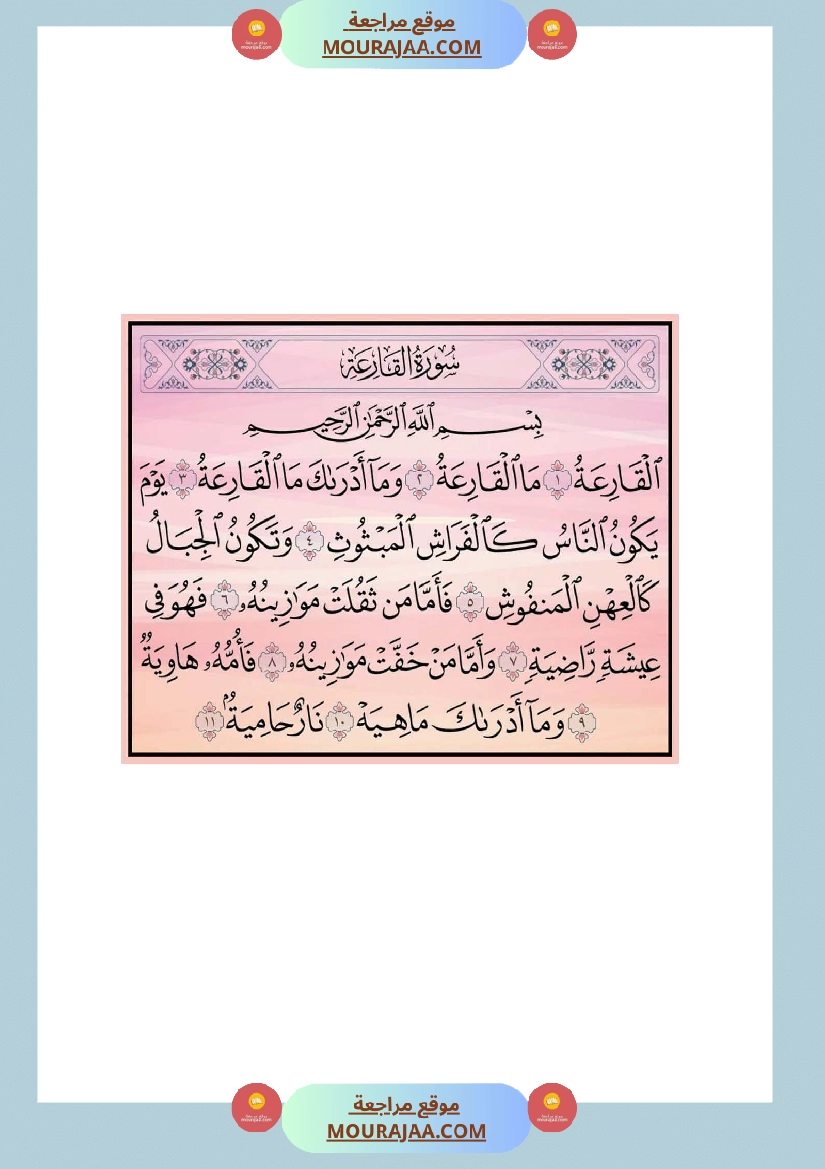 موقع مراجعة
MOURAJAA.COM
سُورَةُ القَارِعَةِ
بِسْمِ ٱللَّهِ ٱلرَّحْمَٰنِ ٱلرَّحِيمِ
ٱلْقَارِعَةُ ١ مَا ٱلْقَارِعَةُ ٢ وَمَآ أَدْرَىٰكَ مَا ٱلْقَارِعَةُ ٣ يَوْمَ
يَكُونُ ٱلنَّاسُ كَٱلْفَرَاشِ ٱلْمَبْثُوثِ ٤ وَتَكُونُ ٱلْجِبَالُ
كَٱلْعِهْنِ ٱلْمَنفُوشِ ٥ فَأَمَّا مَن ثَقُلَتْ مَوَٰزِينُهُۥ ٦ فَهُوَ فِى
عِيشَةٍ رَّاضِيَةٍ ٧ وَأَمَّا مَنْ خَفَّتْ مَوَٰزِينُهُۥ ٨ فَأُمُّهُۥ هَاوِيَةٌ
٩ وَمَآ أَدْرَىٰكَ مَا هِيَهْ ١٠ نَارٌ حَامِيَةٌۢ ١١
موقع مراجعة
MOURAJAA.COM